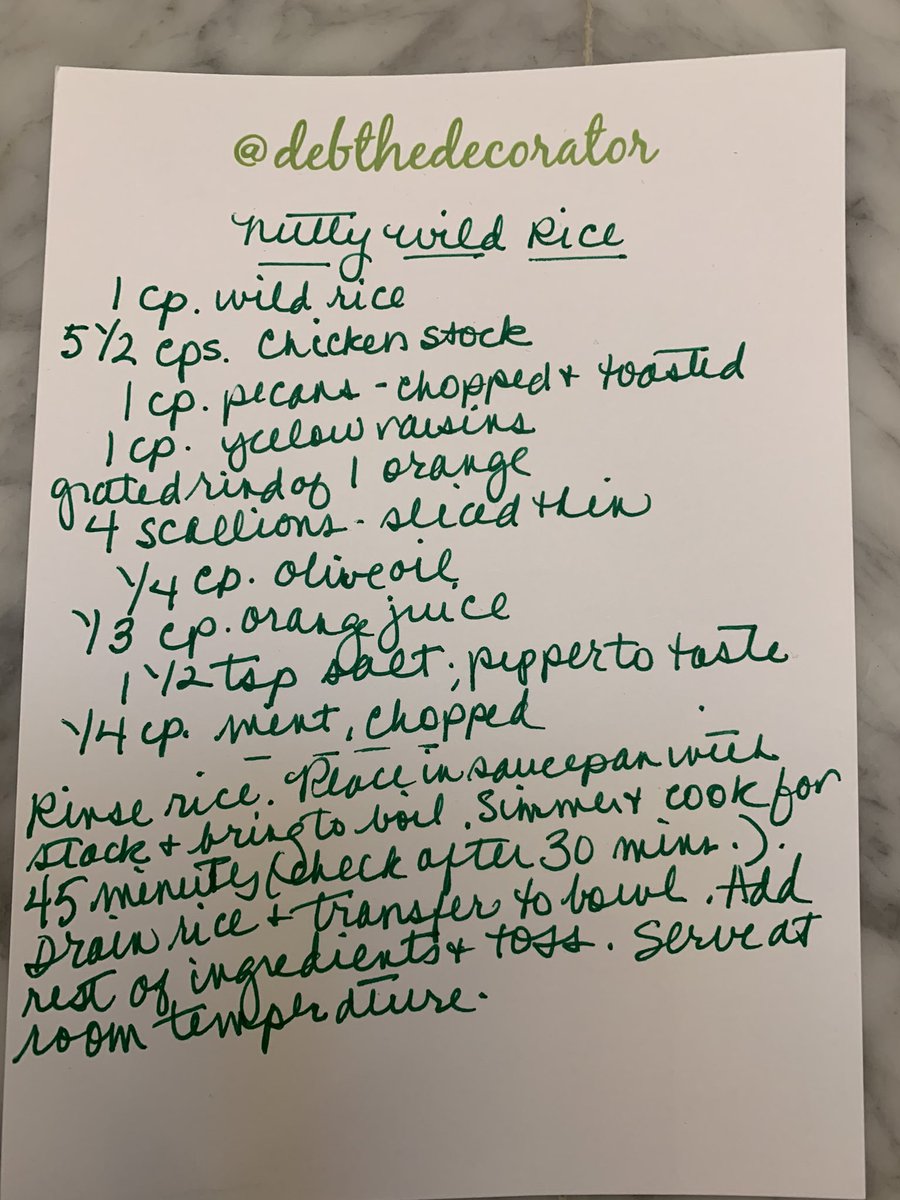 @debthedecorator
Nutty Wild Rice
1 cp. wild rice
5 1/2 cps. chicken stock
1 cp. pecans - chopped + toasted
1 cp. yellow raisins
grated rind of 1 orange
4 scallions - sliced thin
1/4 cp. olive oil
1/3 cp. orange juice
1 1/2 tsp salt; pepper to taste
1/4 cp. mint, chopped
Rinse rice. Place in saucepan with
stock + bring to boil. Simmer + cook for
45 minutes (check after 30 mins.).
Drain rice + transfer to bowl. Add
rest of ingredients + toss. Serve at
room temperature.